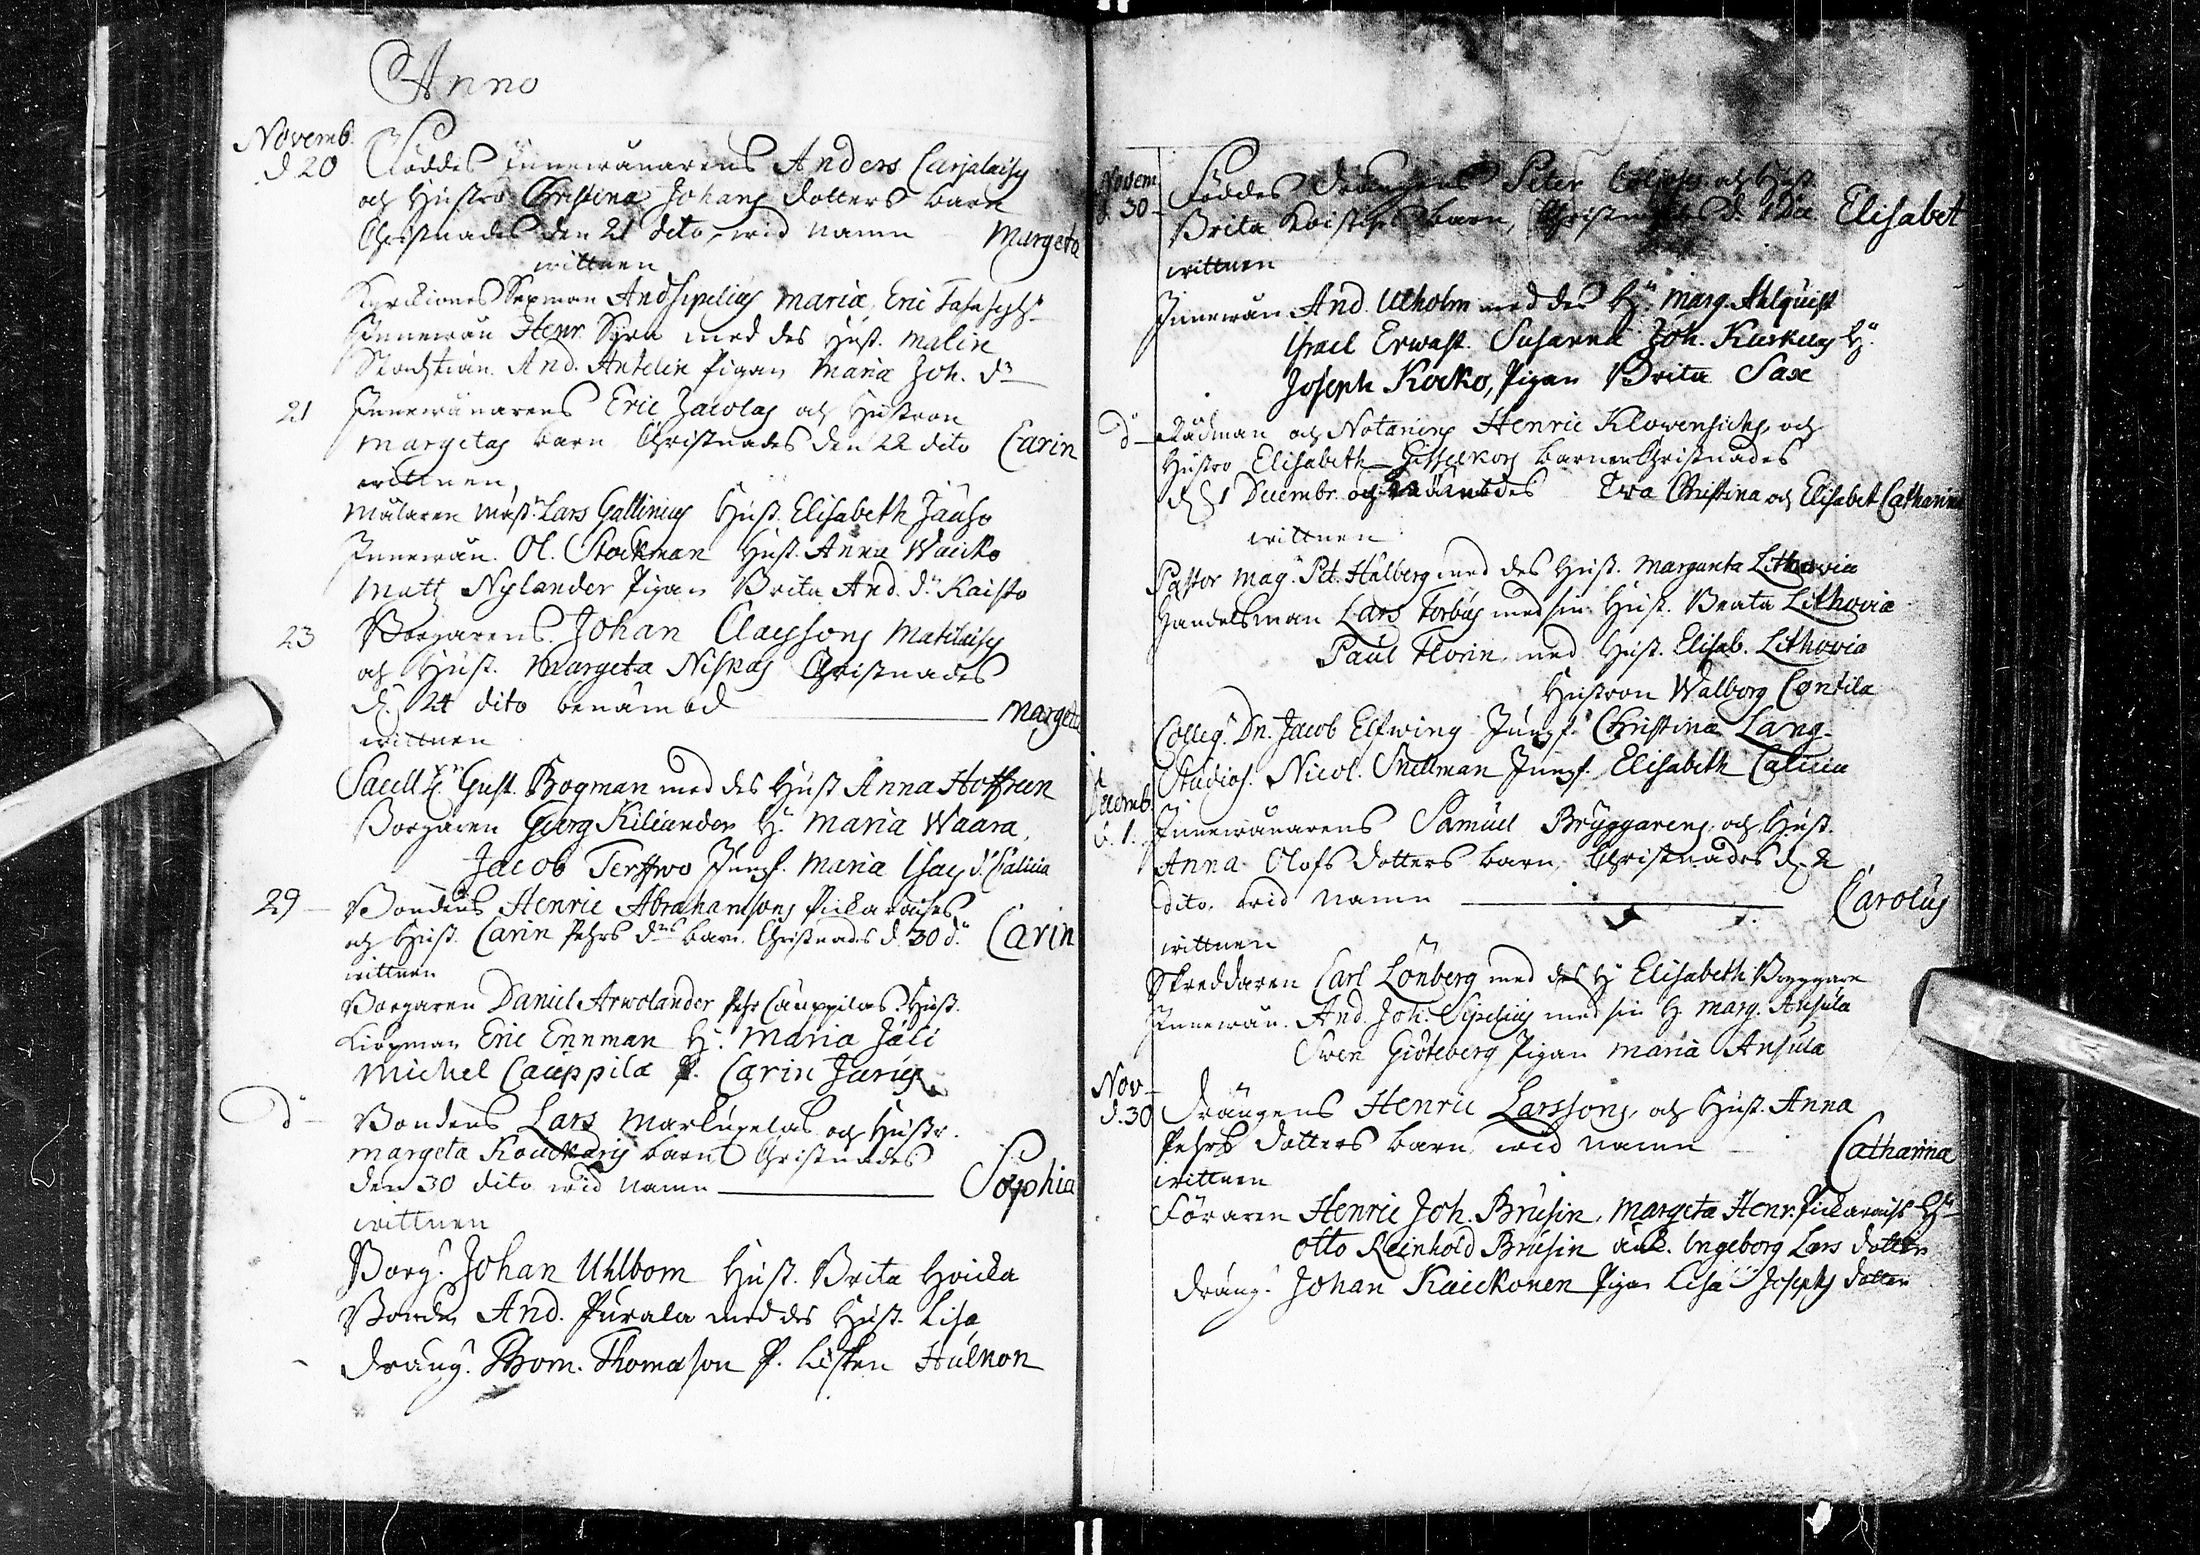 Anno
Novemb.
d 20 Föddes Innewånarens Anders Carjalaisens
och Hustro Christina Johans dotters barn
Christnades den 21 dito, wid namn Margeta
wittnen
Kyrckiones Sexman And Sipelius Maria, Eric
Innewån Henr. Syra med des Hust. Malin
And. Antelin Pigan Maria Joh. dr
21 Innewånarens Eric Jacolas och Hustron
Margetas barn Christnades den 22 dito Carin
wittnen
Målaren Mäst. Lars Gallinius Hust. Elisabeth Jauho
Innewån. Ol. Stockman Hust. Anna Wacko
Matt Nylander Pigan Brita And. dr Kaisto
23 Borgarens Johan Claessons Matilaisens
och Hust. Margeta Niskas Christnades
d. 24 dito benämbd Margeta
wittnen
Gust. Bogman med des Hust Anna Hoffreen
Borgaren Georg Kiliander H. Maria Waara
Jacob Terffwo Jungf. Maria Isacs d. Calicia
29 Bondens Henric Abrahamsons Pickaraises
och Hust. Carin Pehrs drs barn Christnades d. 30 do Carin
wittnen
Borgaren Daniel Arwolander Pehr Cauppilas Hust.
Kiöpman Eric Ennman H. Maria Jäli
Michel Cauppila P. Carin Jurus
do Bondens Lars Markupelas och Hustr.
Margeta Kouckaris barn Christnades
den 30 dito wid namn Sophia
wittnen
Borg. Johan Uhlbom Hust. Brita Hoicka
Bonden And. Purala med des Hust. Lisa
Dräng. Thom. Thomasson P. Lisken Hulkon
Novem
d. 30 Föddes Drängens Peter och Hust
Brita barn, Christnades d. Elisabet
wittnen
Innewån And. Ulholm med des Hu Marg. Ahlquist
Israel Erwast. Susanna Joh. Kurkus Hu
Joseph Kocko, Pigan Brita Sax
do Rådman och Notarius Henric Klowensichs och
Hustro Elisabeth barnen Christnades
d. 1 Decembr. och Ewa Christina och Elisabet Catharina
wittnen
Pastor Mag. Pet. Halberg med des Hust. Margareta Lithovia
Handelsman Lars Forbus med sin Hust. Beata Lithovia
Paul Florin med Hust. Elisab. Lithovia
Hustron Walborg Contila
Colleg. Dn. Jacob Elfwing Jungf. Christina Lang
Studios. Nicol. Snellman Jungf. Elisabeth Calicia
Decemb.
d. 1. Innewånarens Samuel Bryggarens och Hust.
Anna Olofs dotters barn, Christnades d. 2
dito wid namn Carolus
wittnen
Skreddaren Carl Lönberg med des H Elisabeth Bryggare
Innewån. And. Joh. Sipelius med sin H. Marg. Ansula
Swen Giöteberg Pigan Maria Ansula
Nov
d. 30 Drängens Henric Larssons och Hust. Anna
Pehrs dotters barn wid namn Catharina
wittnen
Föraren Henric Joh. Brusin, Margeta Henr. Pickarais Hu
Otto Reinhold Brusin änk. Ingeborg Lars dotter
Dräng. Johan Kaickonen Pigan Lisa Josephs dotter